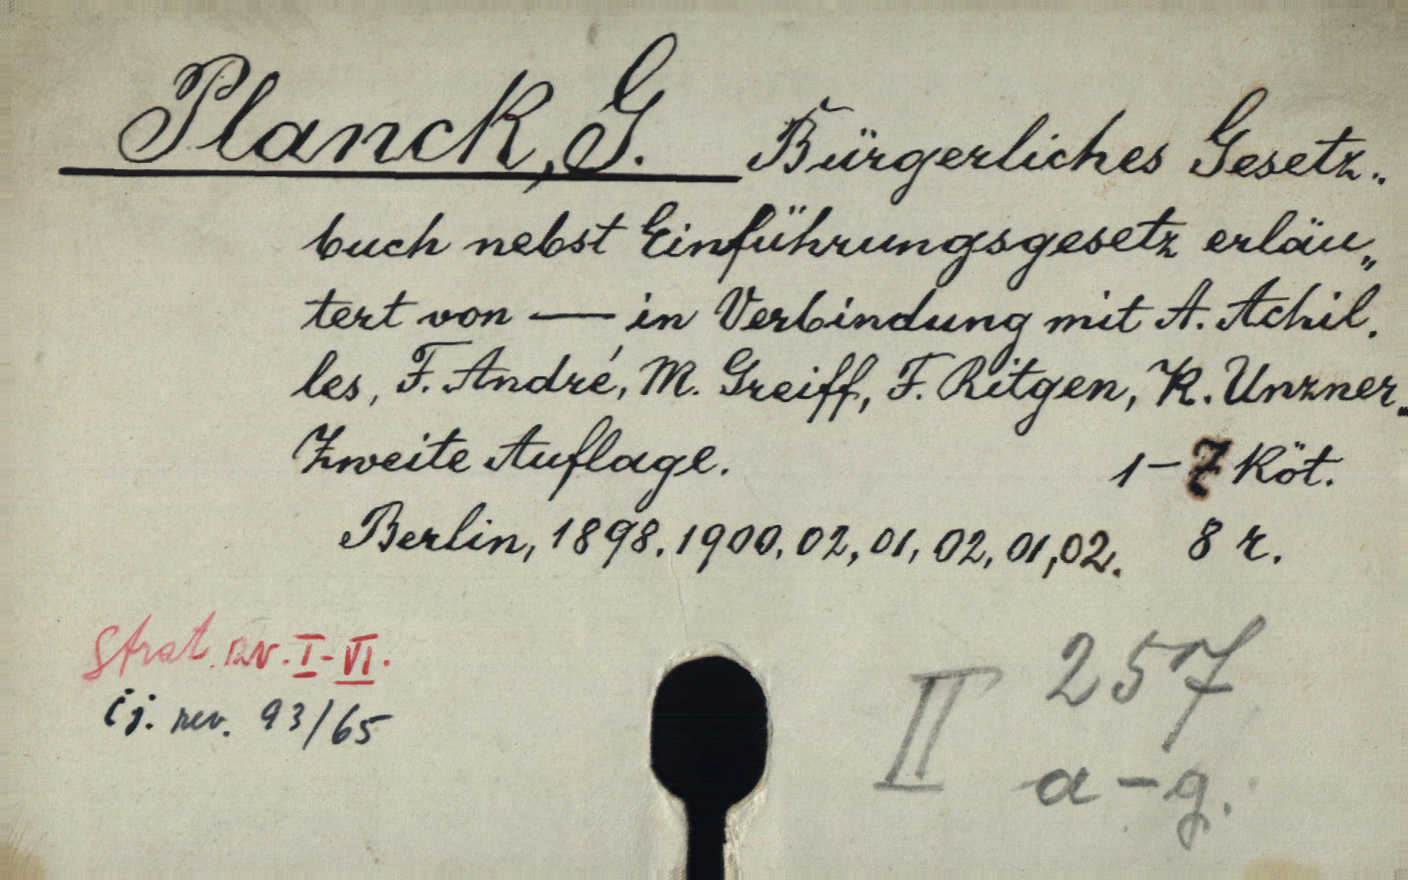 Planck, G. Bürgerliches Gesetz„
buch nebst Einführungsgesetz erläu„
tert von — in Verbindung mit A. Achil.
les, F. André, M. Greiff, F. Ritgen, K. Unzner„
Zweite Auflage. 1–7 Köt.
Berlin, 1898. 1900, 02, 01, 02, 01, 02. 8 r.
Strat. rev. I-VI.
ij. rev. 93/65
II 257
a–g.